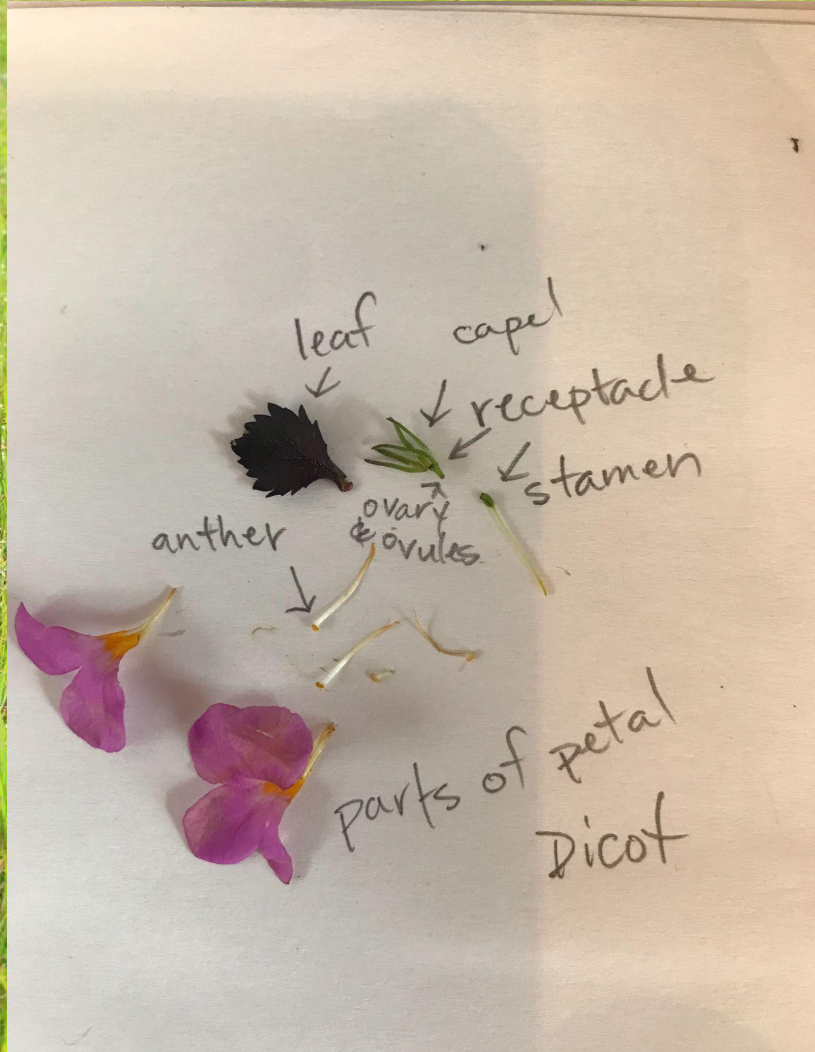 leaf
capel
receptacle
stamen
ovary
& ovules
anther
parts of petal
Dicot